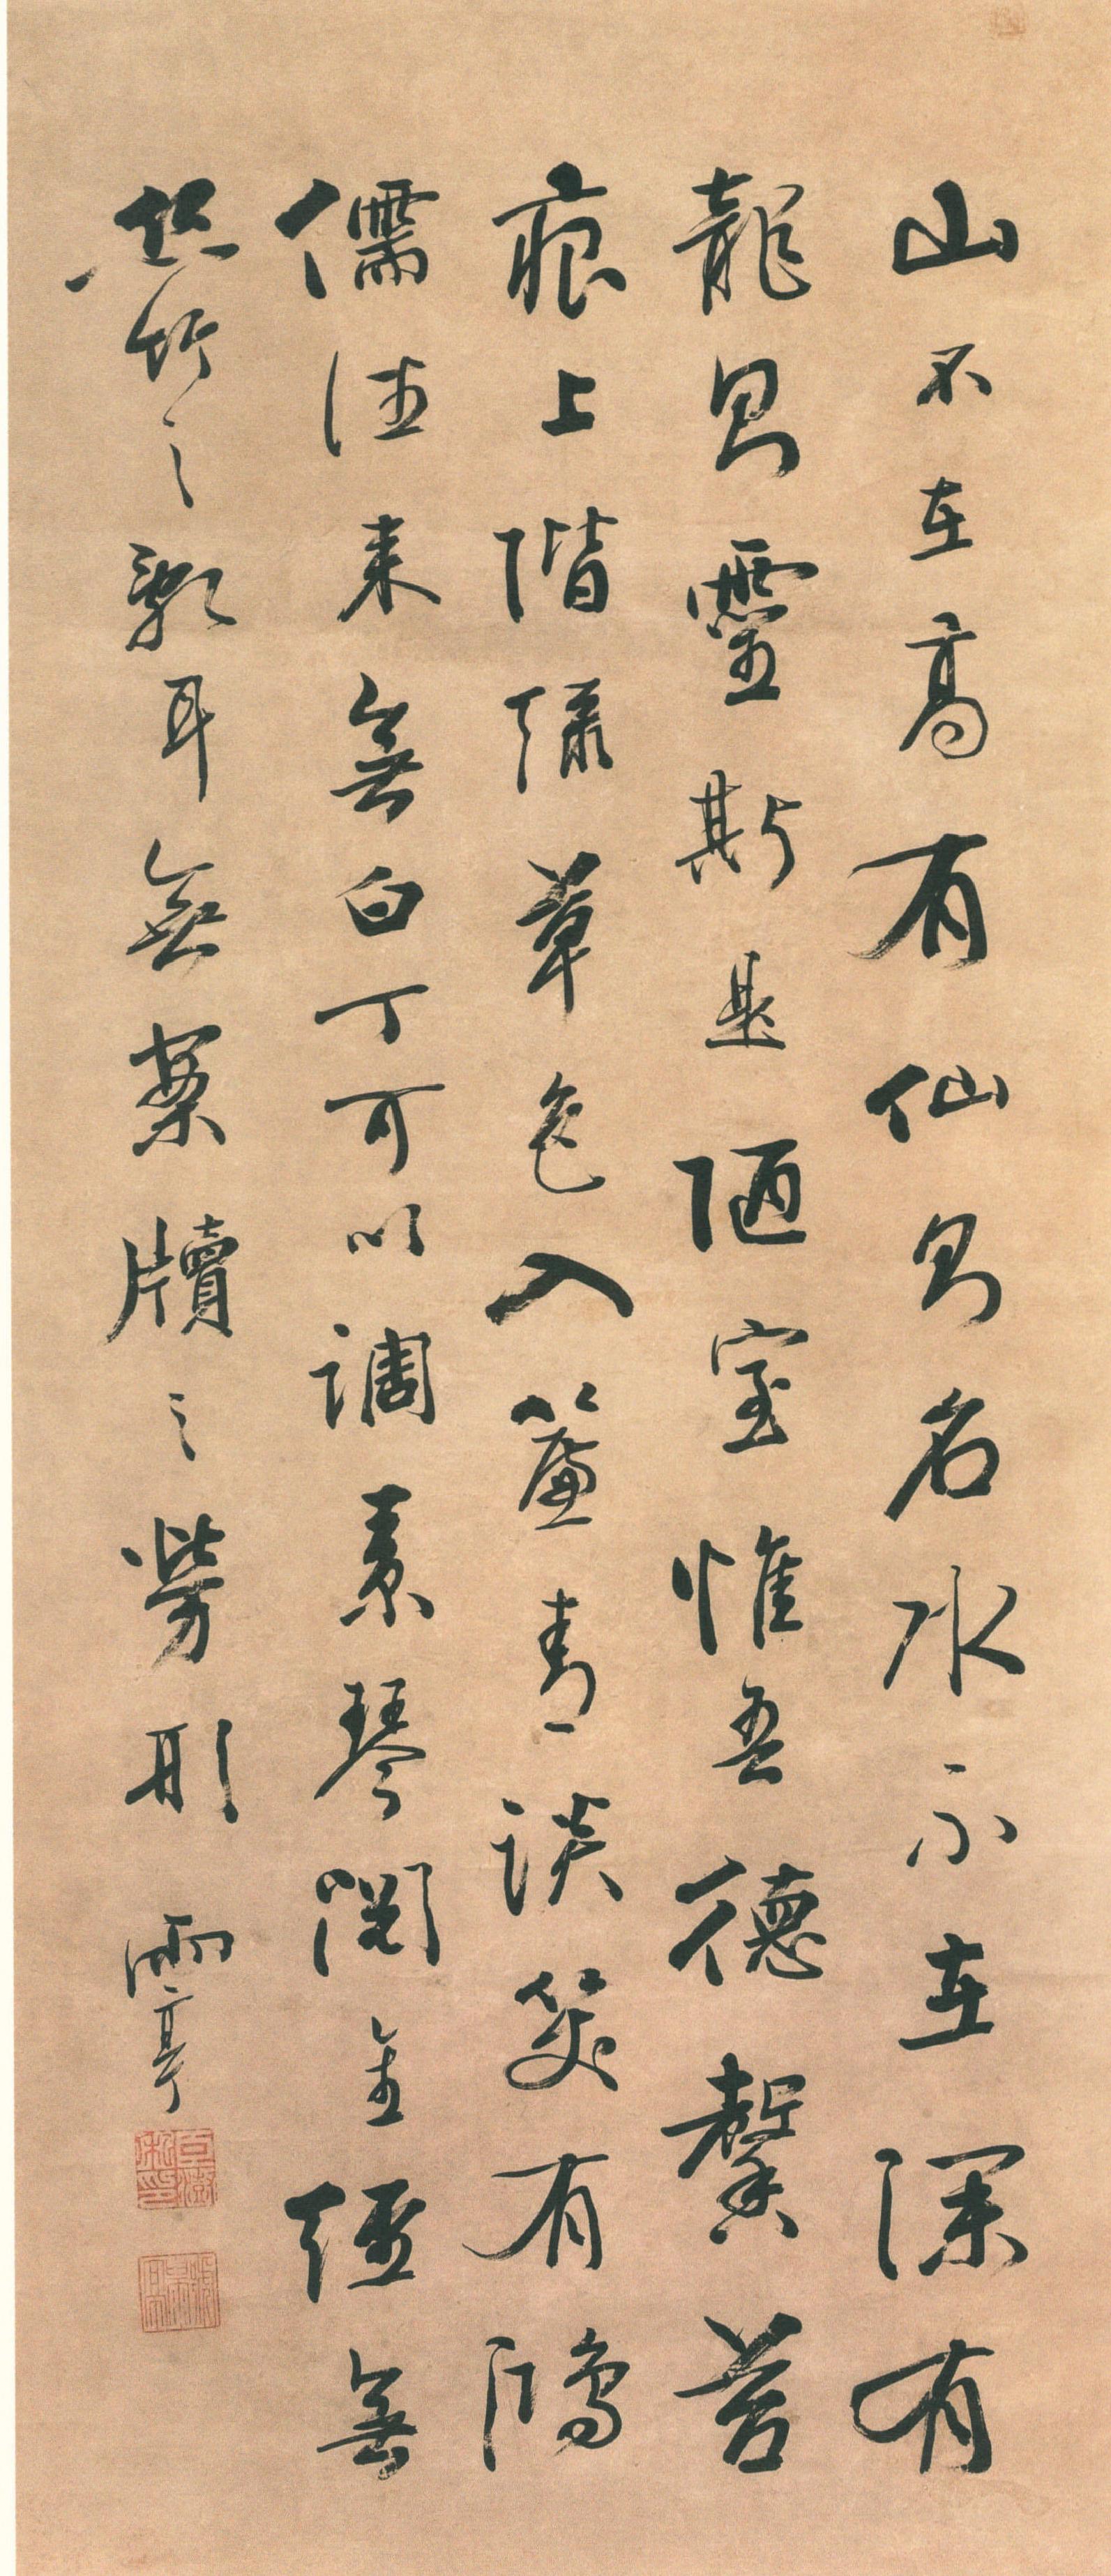 山不在高有仙則名水不在深有
龍則靈斯是陋室惟吾德馨苔
痕上階綠草色入簾青談笑有鴻
儒往来無白丁可以調素琴閱金經無
絲竹之亂耳無案牘之勞形 雨亭